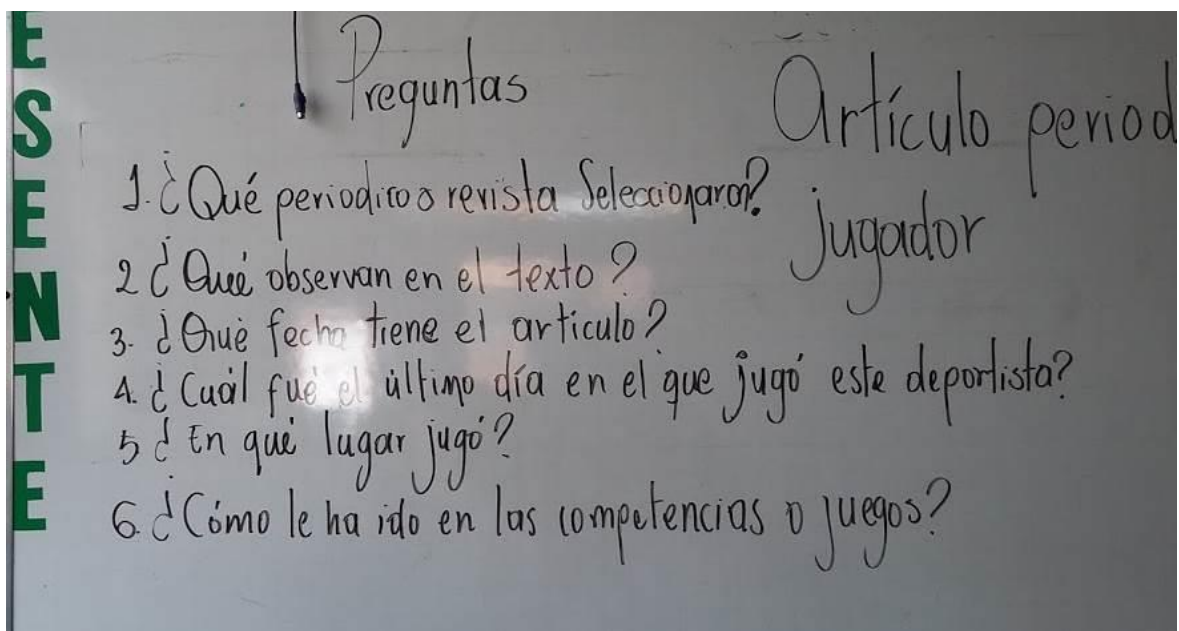 ESENTE
Preguntas
Artículo period
jugador
1. ¿Qué periodico o revista Seleccionaron?
2 ¿Qué observan en el texto?
3. ¿Qué fecha tiene el artículo?
4. ¿Cuál fué el último día en el que jugó este deportista?
5 ¿En qué lugar jugó?
6. ¿Cómo le ha ido en las competencias o juegos?